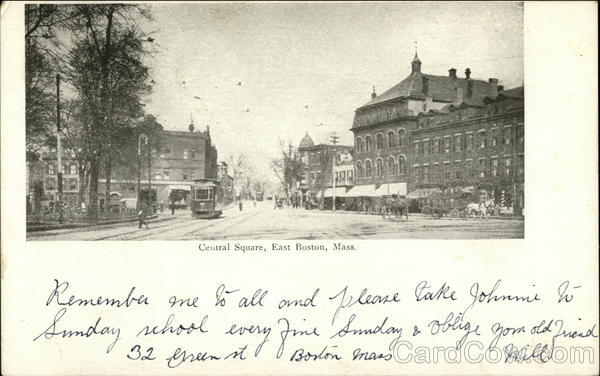 Central Square, East Boston, Mass.
Remember me to all and please take Johnnie to
Sunday school every fine Sunday & oblige your old friend
32 Green st Boston Mass Will
CardCow.com